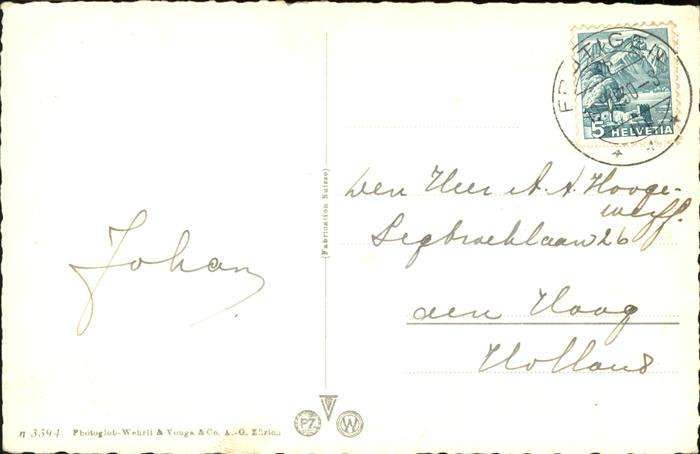 FRUTIGEN
5 HELVETIA
(Fabrication Suisse)
Den Heer A. A. Hooge-
werff.
Segbroeklaan 26
den Haag
Holland
Johan
PZ W
n 3394 Photoglob-Wehrli & Vouga & Co. A.-G. Zürich